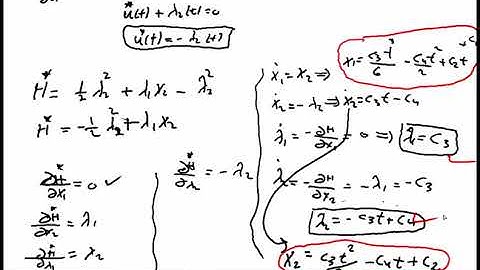 u(t) + λ₂(t) = 0
u*(t) = -λ₂(t)
H* = ½ λ₂² + λ₁x₂ - λ₂²
H* = -½ λ₂² + λ₁x₂
∂H*/∂x₁ = 0 ✓
∂H*/∂x₂ = λ₁
∂H*/∂λ₁ = x₂
∂H*/∂λ₂ = -λ₂
ẋ₁ = x₂ ⇒
x₁ = c₃t³/6 - c₄t²/2 + c₂t +
ẋ₂ = -λ₂ ⇒ ẋ₂ = c₃t - c₄
λ̇₁ = -∂H/∂x₁ = 0 ⇒ λ₁ = c₃
λ̇ = -∂H/∂x₂ = -λ₁ = -c₃
λ₂ = -c₃t + c₄
x₂ = c₃t²/2 - c₄t + c₂